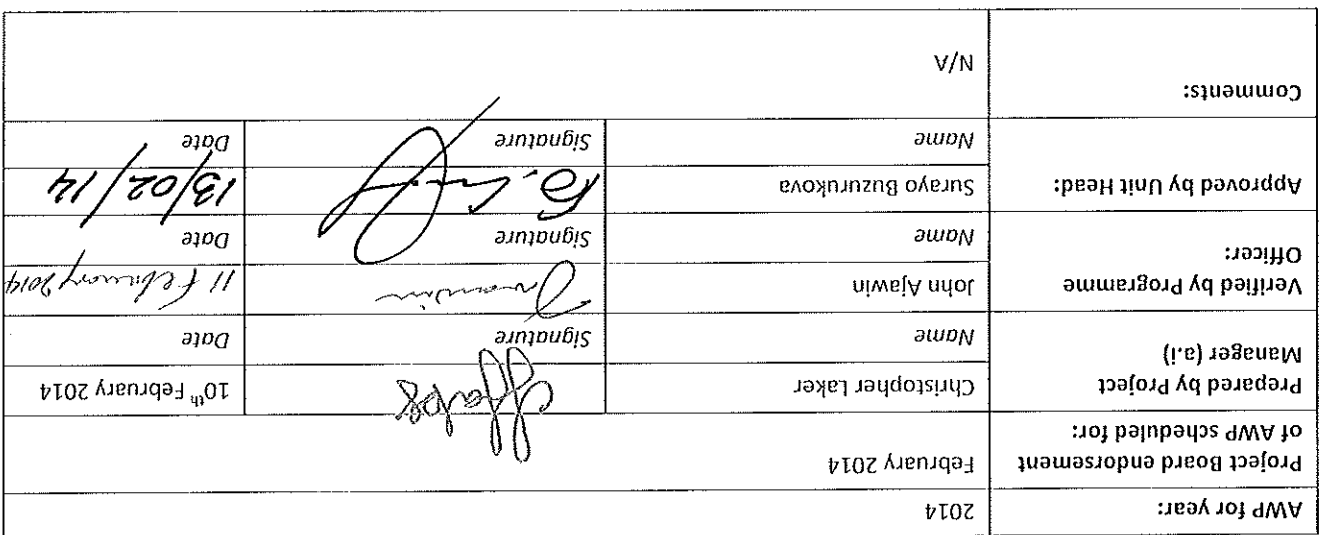 AWP for year:
2014
Project Board endorsement
of AWP scheduled for:
February 2014
Prepared by Project
Manager (a.i)
Christopher Laker
10th February 2014
Name
Signature
Date
Verified by Programme
Officer:
John Ajawin
11 February 2014
Name
Signature
Date
Approved by Unit Head:
Surayo Buzurukova
13/02/14
Name
Signature
Date
Comments:
N/A